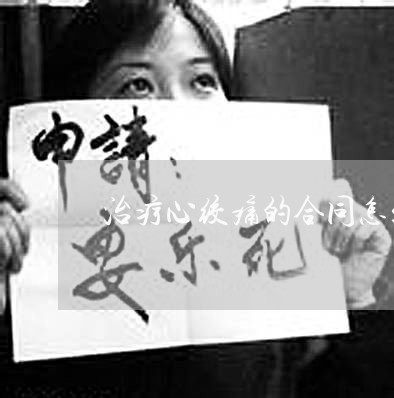 申請：
治疗心绞痛的合同怎
安乐死